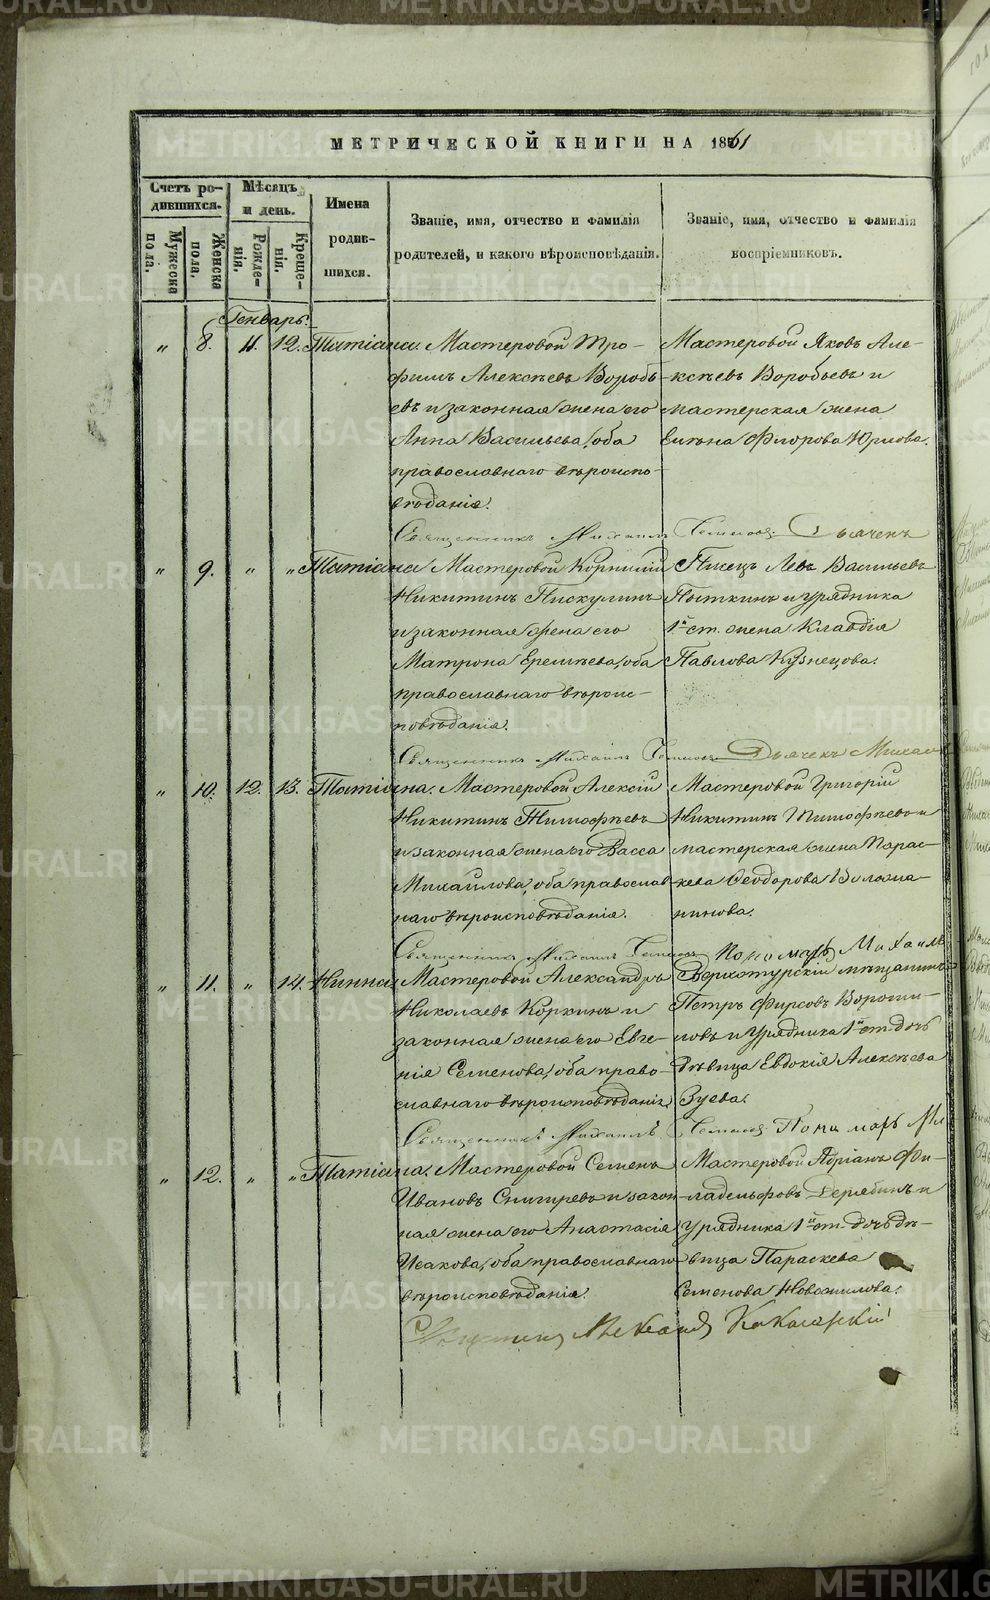 МЕТРИЧЕСКОЙ КНИГИ НА 1861
Счетъ ро-
дившихся.
Мужеска
пола.
Женска
пола.
Мѣсяцъ
и день.
Рожде-
нія.
Креще-
нія.
Имена
родив-
шихся.
Званіе, имя, отчество и фамилія
родителей, и какого вѣроисповѣданія.
Званіе, имя, отчество и фамилія
воспріемниковъ.
Генварь.
" 8. 11. 12. Татіана. Мастеровой Тро-
фимъ Алексѣевъ Воробь-
евъ и законная жена его
Анна Васильева, оба
православнаго вѣроиспо-
вѣданія.
Мастеровой Яковъ Але-
ксѣевъ Воробьевъ и
мастерская жена
Елена Флорова
Священникъ Михаилъ Дьячекъ
" 9. " " Татіана Мастеровой Корнилий
Никитинъ Пискулинъ
и законная жена его
Матрона Еремѣева, оба
православнаго вѣроис-
повѣданія.
Писецъ Левъ Васильевъ
Пыткинъ и урядника
1й ст. жена Клавдія
Павлова Кузнецова.
Священникъ Михаилъ Дьячекъ
" 10. 12. 13. Татіана. Мастеровой Алексій
Никитинъ Тимофѣевъ
и законная жена его Васса
Михаилова, оба православ-
наго вѣроисповѣданія.
Мастеровой Григорій
Никитинъ Тимофѣевъ и
мастерская жена Парас-
кева Феодорова
Священникъ Михаилъ Пономарь Михаилъ
" 11. " 14. Нинна. Мастеровой Александръ
Николаевъ Коркинъ и
законная жена его Евге-
нія Семенова, оба право-
славнаго вѣроисповѣданія.
Верхотурскій мѣщанинъ
Петръ Фирсовъ Вороши-
ловъ и урядника 1й ст. дочь
дѣвица Евдокія Алексѣева
Зуева.
Священникъ Михаилъ Пономарь
" 12. " " Татіана. Мастеровой Семенъ
Ивановъ Снигиревъ и закон-
ная жена его Анастасія
Исакова, оба православнаго
вѣроисповѣданія.
Мастеровой Адріанъ Фи-
ладельфовъ Дерябинъ и
урядника 1й ст. дочь дѣ-
вица Параскева
Семенова Новожилова.
Священникъ
METRIKI.GASO-URAL.RU